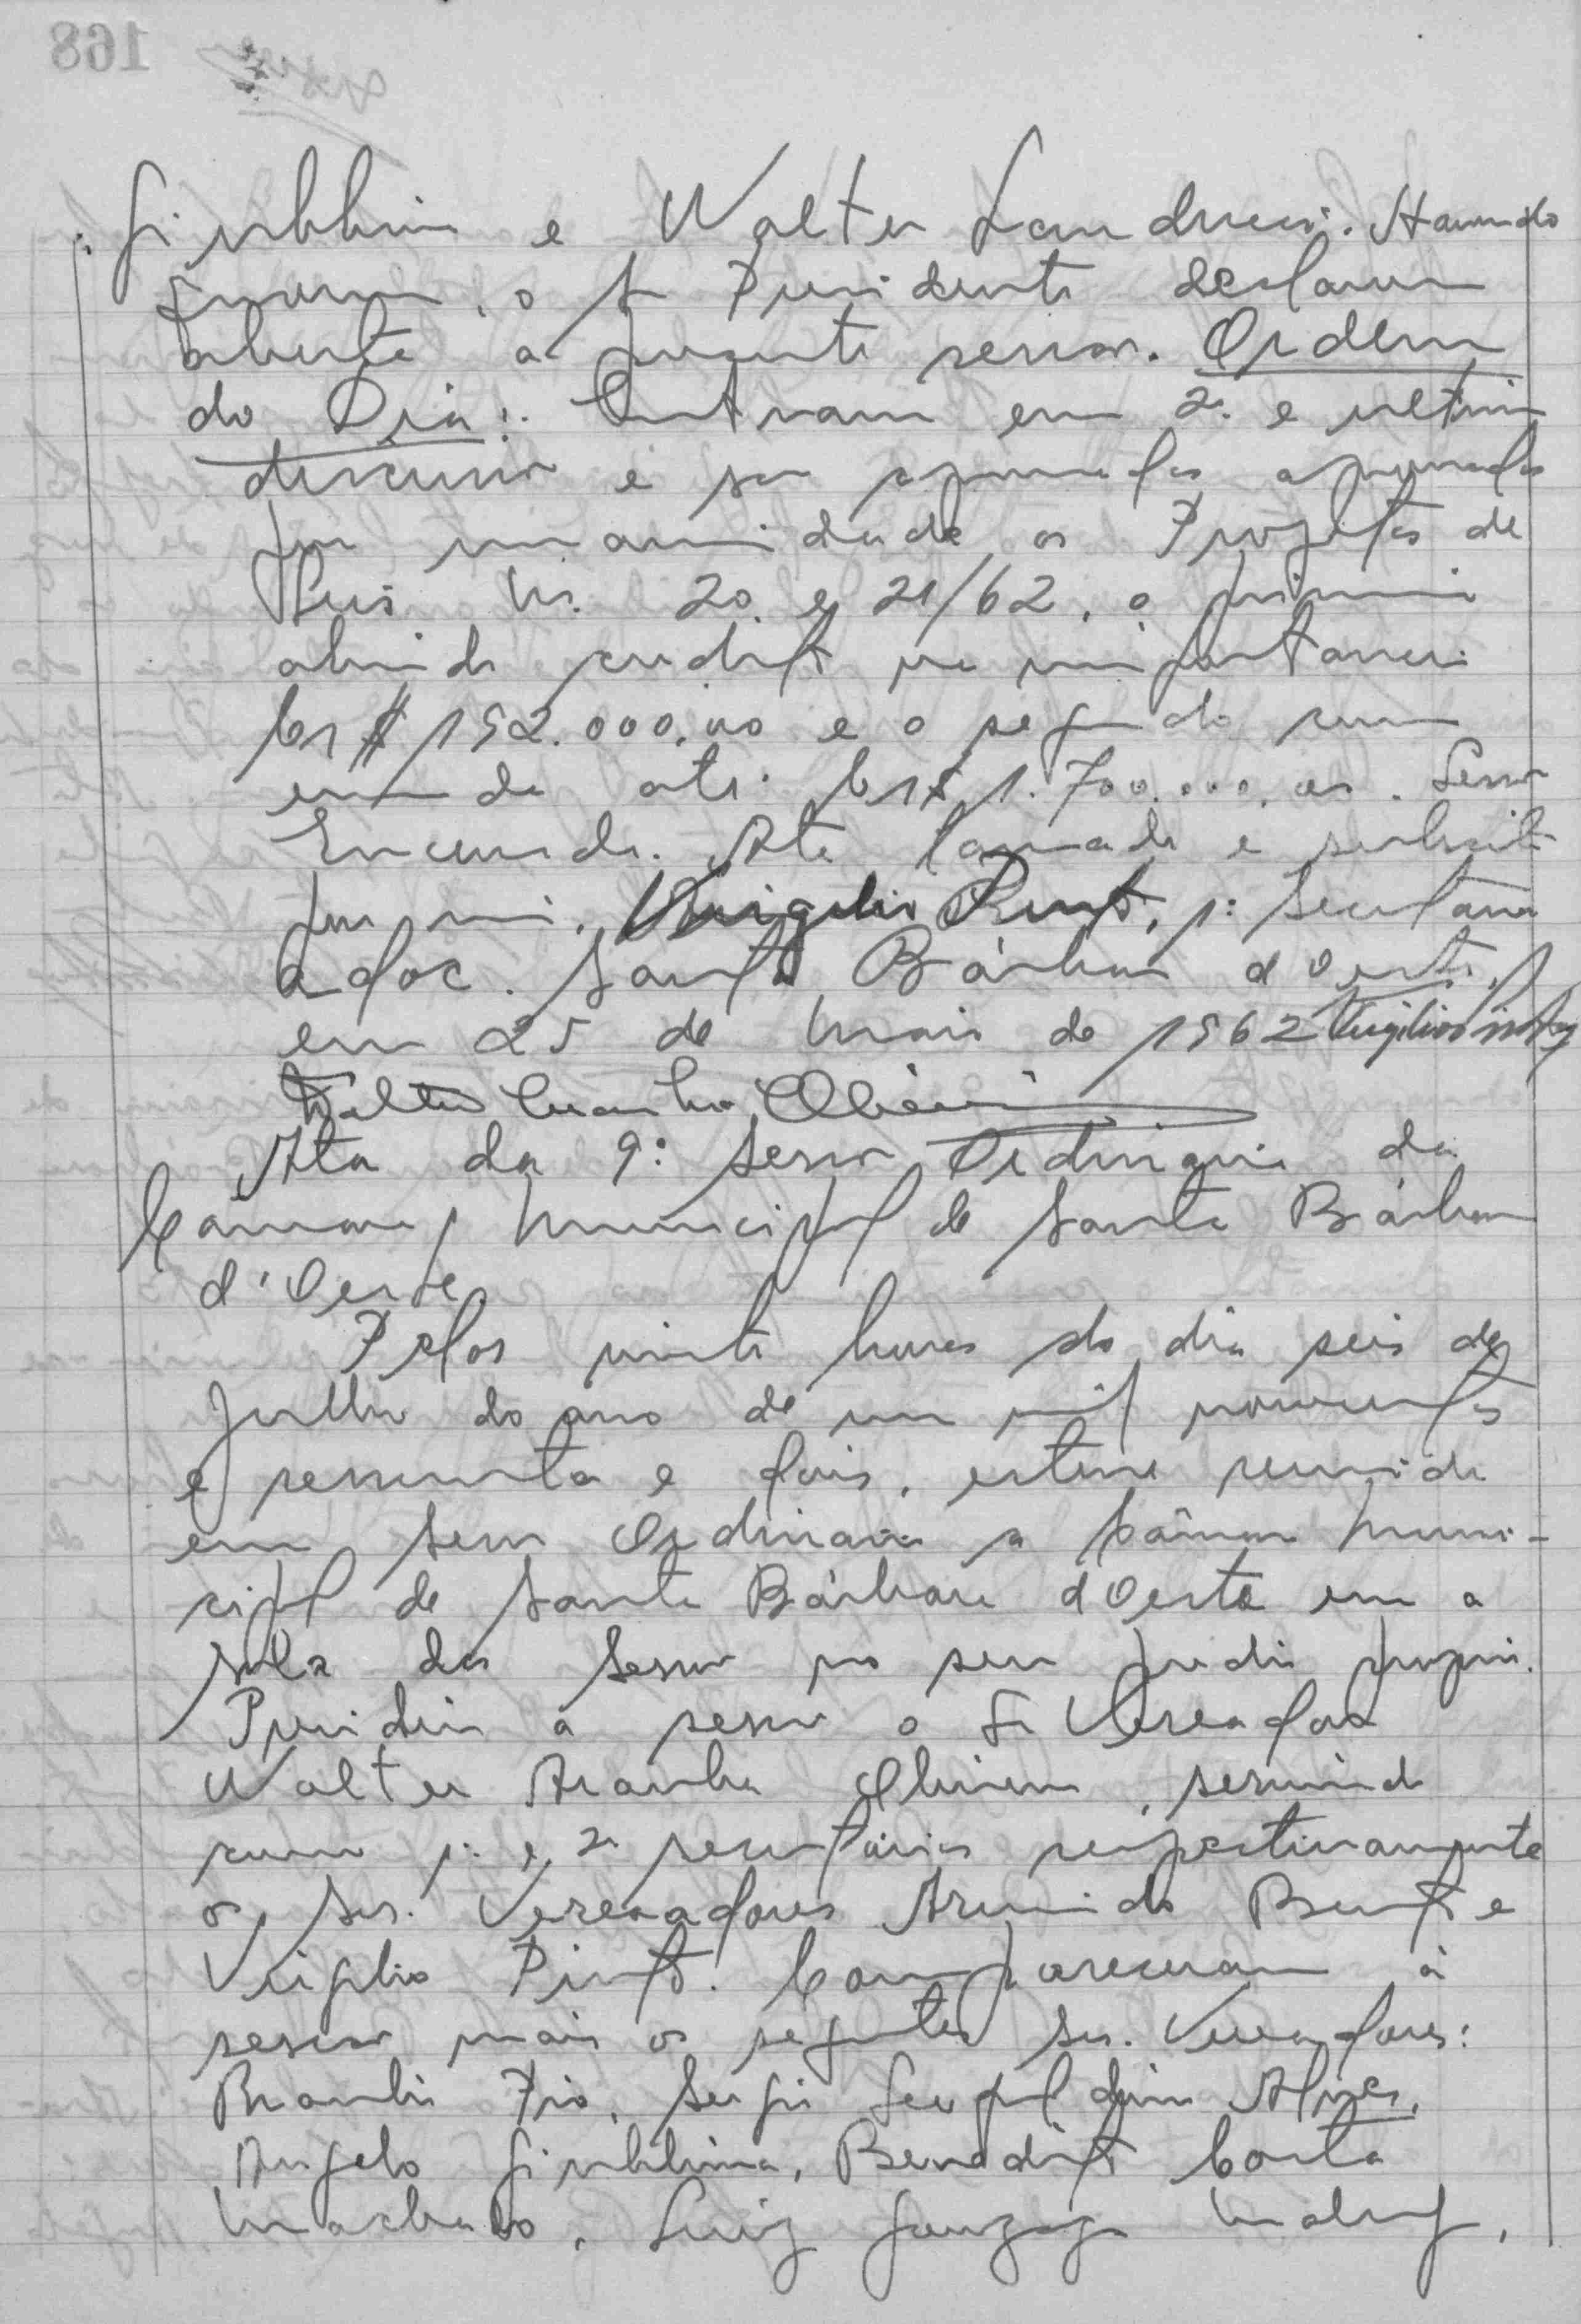 Giubbina e Walter Landucci. Havendo
numero, o Sr Presidente declarou
aberta a presente sessão. Ordem
do Dia: Entraram em 2ª e ultima
discussão e são aprovados aprovados
por unanimidade os Projetos de
Leis Ns. 20 e 21/62, o primeiro
abrindo credito na importancia
Cr$ 152.000,00 e o segundo
até Cr$ 1.700.000,00. Sessão
Encerrada. Ata lavrada e subscrita
por mim, Virgilio Pinto, 1º Secretario
adoc. Santa Bárbara d'Oeste,
em 25 de Maio de 1962 Virgilio Pinto
Walter Aranha Oliveira
Ata da 9ª Sessão Ordinaria da
Câmara Municipal de Santa Bárbara
d'Oeste.
Pelas vinte horas do dia seis de
Julho do ano de um mil novecentos
e sessenta e dois, esteve reunida
em Sessão Ordinaria a Câmara Muni-
cipal de Santa Bárbara d'Oeste em a
sala das Sessões no seu predio proprio.
Presidiu a sessão o Sr Vereador
Walter Aranha Oliveira, servindo
como 1º e 2º secretários respectivamente
os Srs. Vereadores Arminda Bento e
Virgilio Pinto. Compareceram à
sessão mais os seguintes Srs. Vereadores:
Braulio Pio, Sergio Leopoldino Alves,
Angelo Giubbina, Benedito Costa
Machado, Luiz Gonzaga